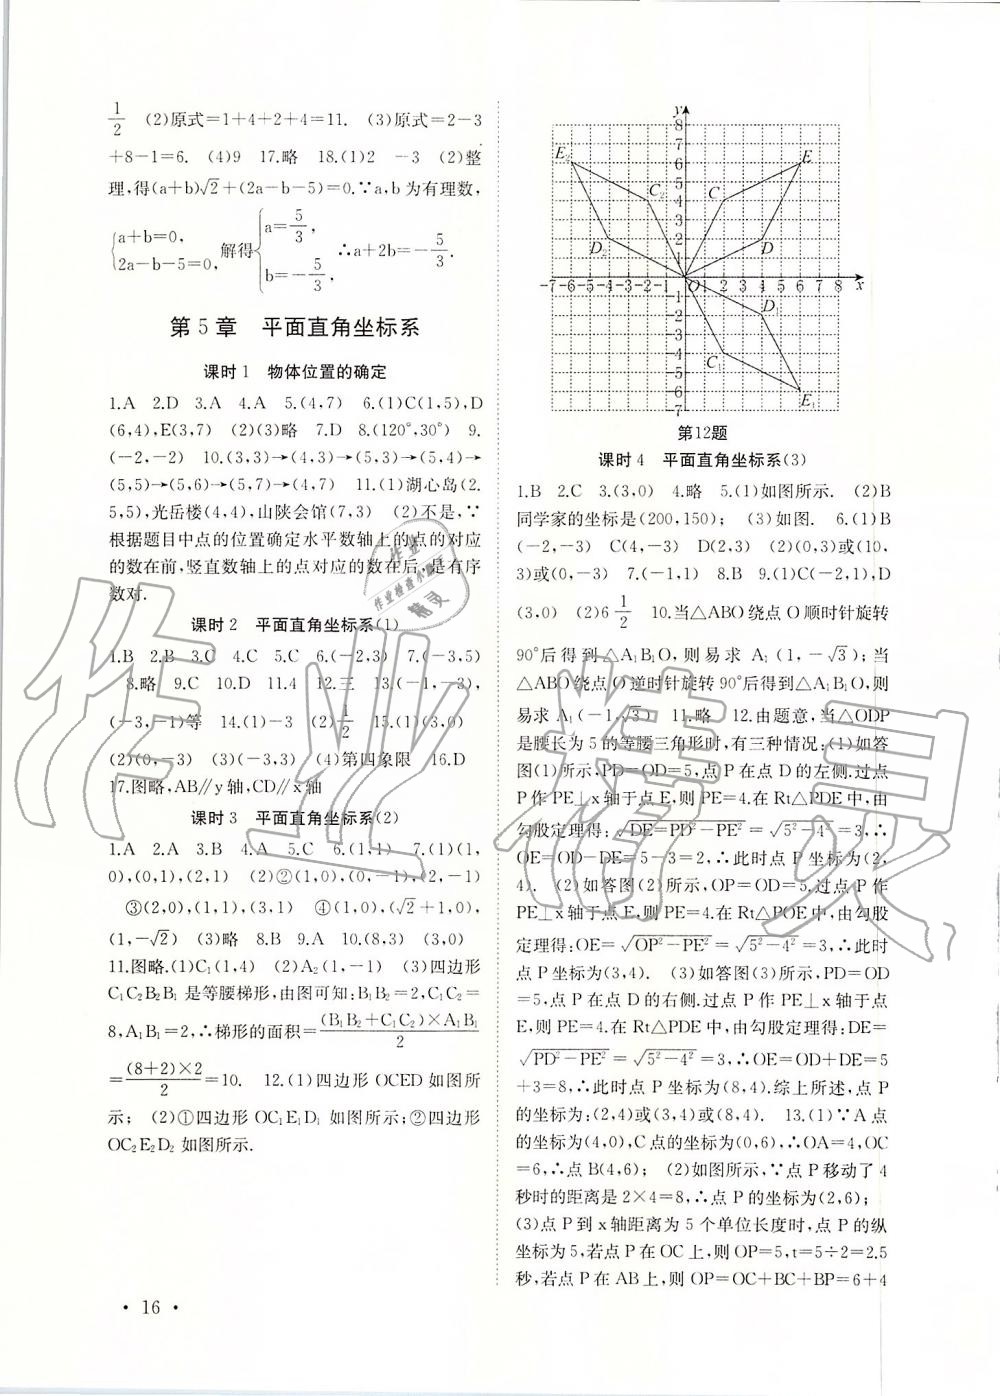 1/2 (2)原式=1+4+2+4=11. (3)原式=2-3
+8-1=6. (4)9 17.略 18.(1)2 -3 (2)整
理,得(a+b)√2+(2a-b-5)=0.∵a,b为有理数,
{a+b=0, 2a-b-5=0, 解得{a=5/3, b=-5/3, ∴a+2b=-5/3.
第5章 平面直角坐标系
课时1 物体位置的确定
1.A 2.D 3.A 4.A 5.(4,7) 6.(1)C(1,5),D
(6,4),E(3,7) (2)(3)略 7.D 8.(120°,30°) 9.
(-2,-2) 10.(3,3)→(4,3)→(5,3)→(5,4)→
(5,5)→(5,6)→(5,7)→(4,7) 11.(1)湖心岛(2.
5,5),光岳楼(4,4),山陕会馆(7,3) (2)不是,∵
根据题目中点的位置确定水平数轴上的点的对应
的数在前,竖直数轴上的点对应的数在后,是有序
数对.
课时2 平面直角坐标系(1)
1.B 2.B 3.C 4.C 5.C 6.(-2,3) 7.(-3,5)
8.略 9.C 10.D 11.4 12.三 13.(-1,-3),
(-3,-1)等 14.(1)-3 (2)1/2 15.(1)(3,0)
(2)(0,-3) (3)(-3,3) (4)第四象限 16.D
17.图略,AB∥y轴,CD∥x轴
课时3 平面直角坐标系(2)
1.A 2.A 3.B 4.A 5.C 6.(1,1) 7.(1)(1,
0),(0,1),(2,1) (2)②(1,0),(0,-1),(2,-1)
③(2,0),(1,1),(3,1) ④(1,0),(√2+1,0),
(1,-√2) (3)略 8.B 9.A 10.(8,3) (3,0)
11.图略.(1)C₁(1,4) (2)A₂(1,-1) (3)四边形
C₁C₂B₂B₁是等腰梯形,由图可知:B₁B₂=2,C₁C₂=
8,A₁B₁=2,∴梯形的面积=(B₁B₂+C₁C₂)×A₁B₁/2
=(8+2)×2/2=10. 12.(1)四边形OCED如图所
示; (2)①四边形OC₁E₁D₁如图所示;②四边形
OC₂E₂D₂如图所示.
• 16 •
y
8
7
6
5
4
3
2
1
E₂
C₂
C
E
D₂
D
-7-6-5-4-3-2-1 O 1 2 3 4 5 6 7 8 x
-1
-2
-3
-4
-5
-6
-7
D₁
C₁
E₁
第12题
课时4 平面直角坐标系(3)
1.B 2.C 3.(3,0) 4.略 5.(1)如图所示. (2)B
同学家的坐标是(200,150); (3)如图. 6.(1)B
(-2,-3) C(4,-3) D(2,3) (2)(0,3)或(10,
3)或(0,-3) 7.(-1,1) 8.B 9.(1)C(-2,1),D
(3,0) (2)6 1/2 10.当△ABO绕点O顺时针旋转
90°后得到△A₁B₁O,则易求A₁(1,-√3);当
△ABO绕点O逆时针旋转90°后得到△A₁B₁O,则
易求A₁(-1,√3) 11.略 12.由题意,当△ODP
是腰长为5的等腰三角形时,有三种情况:(1)如答
图(1)所示,PD=OD=5,点P在点D的左侧.过点
P作PE⊥x轴于点E,则PE=4.在Rt△PDE中,由
勾股定理得:√DE=PD²-PE²=√5²-4²=3,∴
OE=OD-DE=5-3=2,∴此时点P坐标为(2,
4). (2)如答图(2)所示,OP=OD=5,过点P作
PE⊥x轴于点E,则PE=4.在Rt△POE中,由勾股
定理得:OE=√OP²-PE²=√5²-4²=3,∴此时
点P坐标为(3,4). (3)如答图(3)所示,PD=OD
=5,点P在点D的右侧.过点P作PE⊥x轴于点
E,则PE=4.在Rt△PDE中,由勾股定理得:DE=
√PD²-PE²=√5²-4²=3,∴OE=OD+DE=5
+3=8,∴此时点P坐标为(8,4).综上所述,点P
的坐标为:(2,4)或(3,4)或(8,4). 13.(1)∵A点
的坐标为(4,0),C点的坐标为(0,6),∴OA=4,OC
=6,∴点B(4,6); (2)如图所示,∵点P移动了4
秒时的距离是2×4=8,∴点P的坐标为(2,6);
(3)点P到x轴距离为5个单位长度时,点P的纵
坐标为5,若点P在OC上,则OP=5,t=5÷2=2.5
秒,若点P在AB上,则OP=OC+BC+BP=6+4
作业精灵
作业
作业检查小
精灵